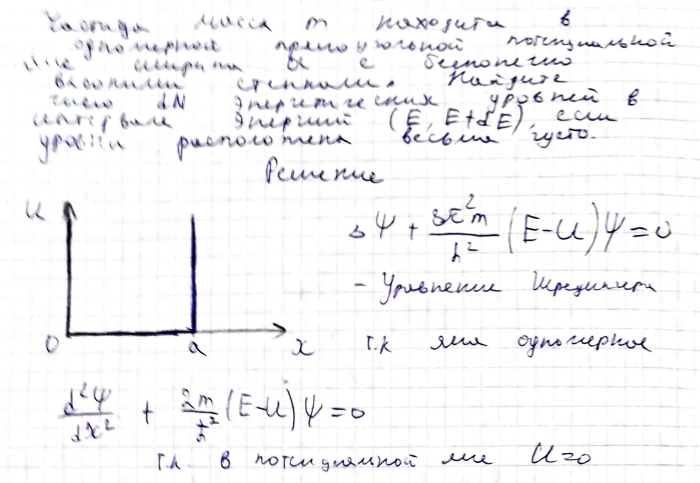 Частица масса m находится в
одномерной прямоугольной потенциальной
яме ширина a с бесконечно
высокими стенками. Найдите
число dN энергетических уровней в
интервале энергий (E, E+dE), если
уровни расположена весьма густо.
Решение
U
0 a x
Δ Ψ + 8π²m/h² (E-U) Ψ = 0
- Уравнение Шредингера
т.к яма одномерное
d²Ψ/dx² + 2m/ħ² (E-U) Ψ = 0
т.к. в потенциальной яме U=0